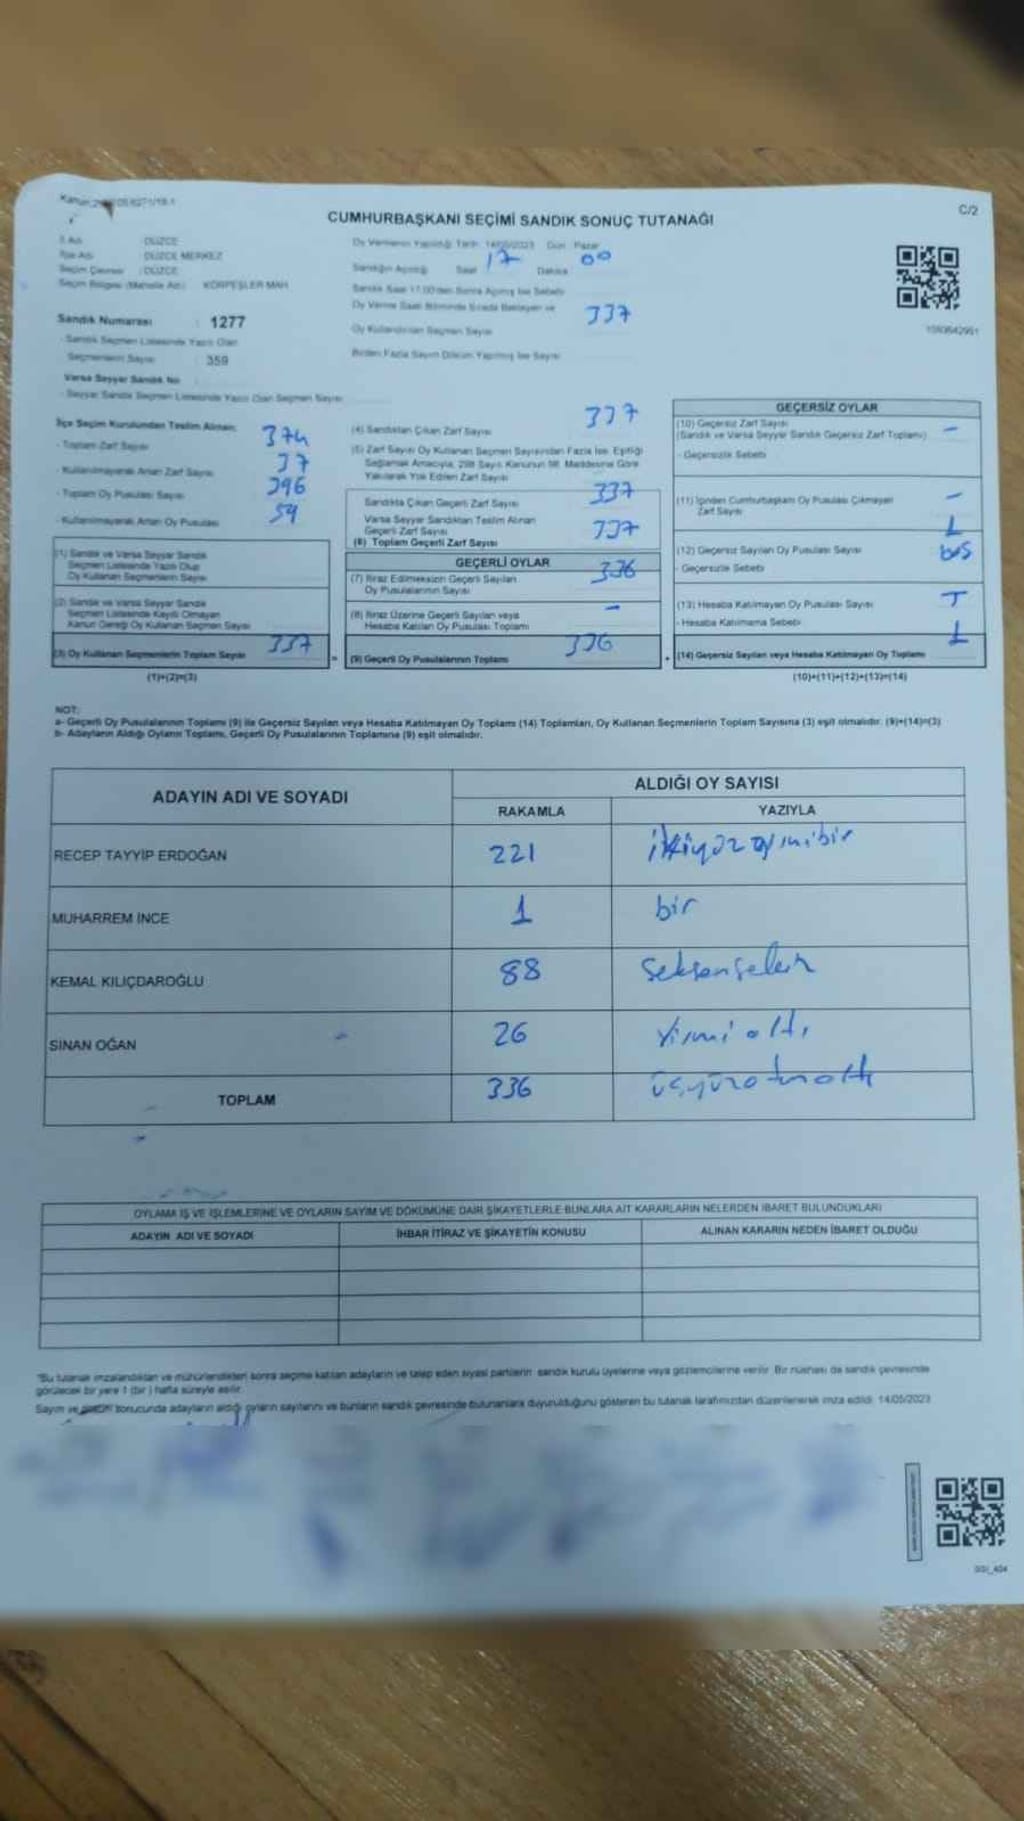 CUMHURBAŞKANI SEÇİMİ SANDIK SONUÇ TUTANAĞI
C/2
İl Adı : DÜZCE
İlçe Adı : DÜZCE MERKEZ
Seçim Çevresi : DÜZCE
Seçim Bölgesi (Mahalle Adı) : KÖRPEŞLER MAH
Oy Vermenin Yapıldığı Tarih 14/05/2023 Gün Pazar
Sandığın Açıldığı Saat 17 Dakika 00
Sandık Saat 17.00'den Sonra Açılmış İse Sebebi
Oy Verme Saati Bitiminde Sırada Bekleyen ve
Oy Kullandırılan Seçmen Sayısı
337
Birden Fazla Sayım Döküm Yapılmış İse Sayısı
Sandık Numarası : 1277
- Sandık Seçmen Listesinde Yazılı Olan
Seçmenlerin Sayısı : 359
Varsa Seyyar Sandık No
- Seyyar Sandık Seçmen Listesinde Yazılı Olan Seçmen Sayısı
İlçe Seçim Kurulundan Teslim Alınan:
- Toplam Zarf Sayısı 374
- Kullanılmayarak Artan Zarf Sayısı 37
- Toplam Oy Pusulası Sayısı 396
- Kullanılmayarak Artan Oy Pusulası 59
(1) Sandık ve Varsa Seyyar Sandık
Seçmen Listesinde Yazılı Olup
Oy Kullanan Seçmenlerin Sayısı
(2) Sandık ve Varsa Seyyar Sandık
Seçmen Listesinde Kayıtlı Olmayan
Kanun Gereği Oy Kullanan Seçmen Sayısı
(3) Oy Kullanan Seçmenlerin Toplam Sayısı 337
(1)+(2)=(3)
(4) Sandıktan Çıkan Zarf Sayısı 337
(5) Zarf Sayısı Oy Kullanan Seçmen Sayısından Fazla İse, Eşitliği
Sağlamak Amacıyla, 298 Sayılı Kanunun 98. Maddesine Göre
Yakılarak Yok Edilen Zarf Sayısı
Sandıkta Çıkan Geçerli Zarf Sayısı 337
Varsa Seyyar Sandıktan Teslim Alınan
Geçerli Zarf Sayısı
(6) Toplam Geçerli Zarf Sayısı 337
GEÇERLİ OYLAR
(7) İtiraz Edilmeksizin Geçerli Sayılan
Oy Pusulalarının Sayısı 336
(8) İtiraz Üzerine Geçerli Sayılan veya
Hesaba Katılan Oy Pusulası Toplamı -
= (9) Geçerli Oy Pusulalarının Toplamı 336
GEÇERSİZ OYLAR
(10) Geçersiz Zarf Sayısı
(Sandık ve Varsa Seyyar Sandık Geçersiz Zarf Toplamı) -
- Geçersizlik Sebebi
(11) İçinden Cumhurbaşkanı Oy Pusulası Çıkmayan
Zarf Sayısı -
(12) Geçersiz Sayılan Oy Pusulası Sayısı 1
- Geçersizlik Sebebi boş
(13) Hesaba Katılmayan Oy Pusulası Sayısı
- Hesaba Katılmama Sebebi
+ (14) Geçersiz Sayılan veya Hesaba Katılmayan Oy Toplamı 1
(10)+(11)+(12)+(13)=(14)
NOT:
a- Geçerli Oy Pusulalarının Toplamı (9) ile Geçersiz Sayılan veya Hesaba Katılmayan Oy Toplamı (14) Toplamları, Oy Kullanan Seçmenlerin Toplam Sayısına (3) eşit olmalıdır. (9)+(14)=(3)
b- Adayların Aldığı Oyların Toplamı, Geçerli Oy Pusulalarının Toplamına (9) eşit olmalıdır.
ADAYIN ADI VE SOYADI
ALDIĞI OY SAYISI
RAKAMLA YAZIYLA
RECEP TAYYİP ERDOĞAN 221 ikiyüzyirmibir
MUHARREM İNCE 1 bir
KEMAL KILIÇDAROĞLU 88 seksensekiz
SİNAN OĞAN 26 Yirmialtı
TOPLAM 336 üçyüzotuzaltı
OYLAMA İŞ VE İŞLEMLERİNE VE OYLARIN SAYIM VE DÖKÜMÜNE DAİR ŞİKAYETLERLE BUNLARA AİT KARARLARIN NELERDEN İBARET BULUNDUKLARI
ADAYIN ADI VE SOYADI İHBAR İTİRAZ VE ŞİKAYETİN KONUSU ALINAN KARARIN NEDEN İBARET OLDUĞU
"Bu tutanak imzalandıktan ve mühürlendikten sonra seçime katılan adayların ve talep eden siyasi partilerin sandık kurulu üyelerine veya gözlemcilerine verilir. Bir nüshası da sandık çevresinde
görülecek bir yere 1 (bir) hafta süreyle asılır.
Sayım ve döküm sonucunda adayların aldığı oyların sayılarını ve bunların sandık çevresinde bulunanlara duyurulduğunu gösteren bu tutanak tarafımızdan düzenlenerek imza edildi. 14/05/2023